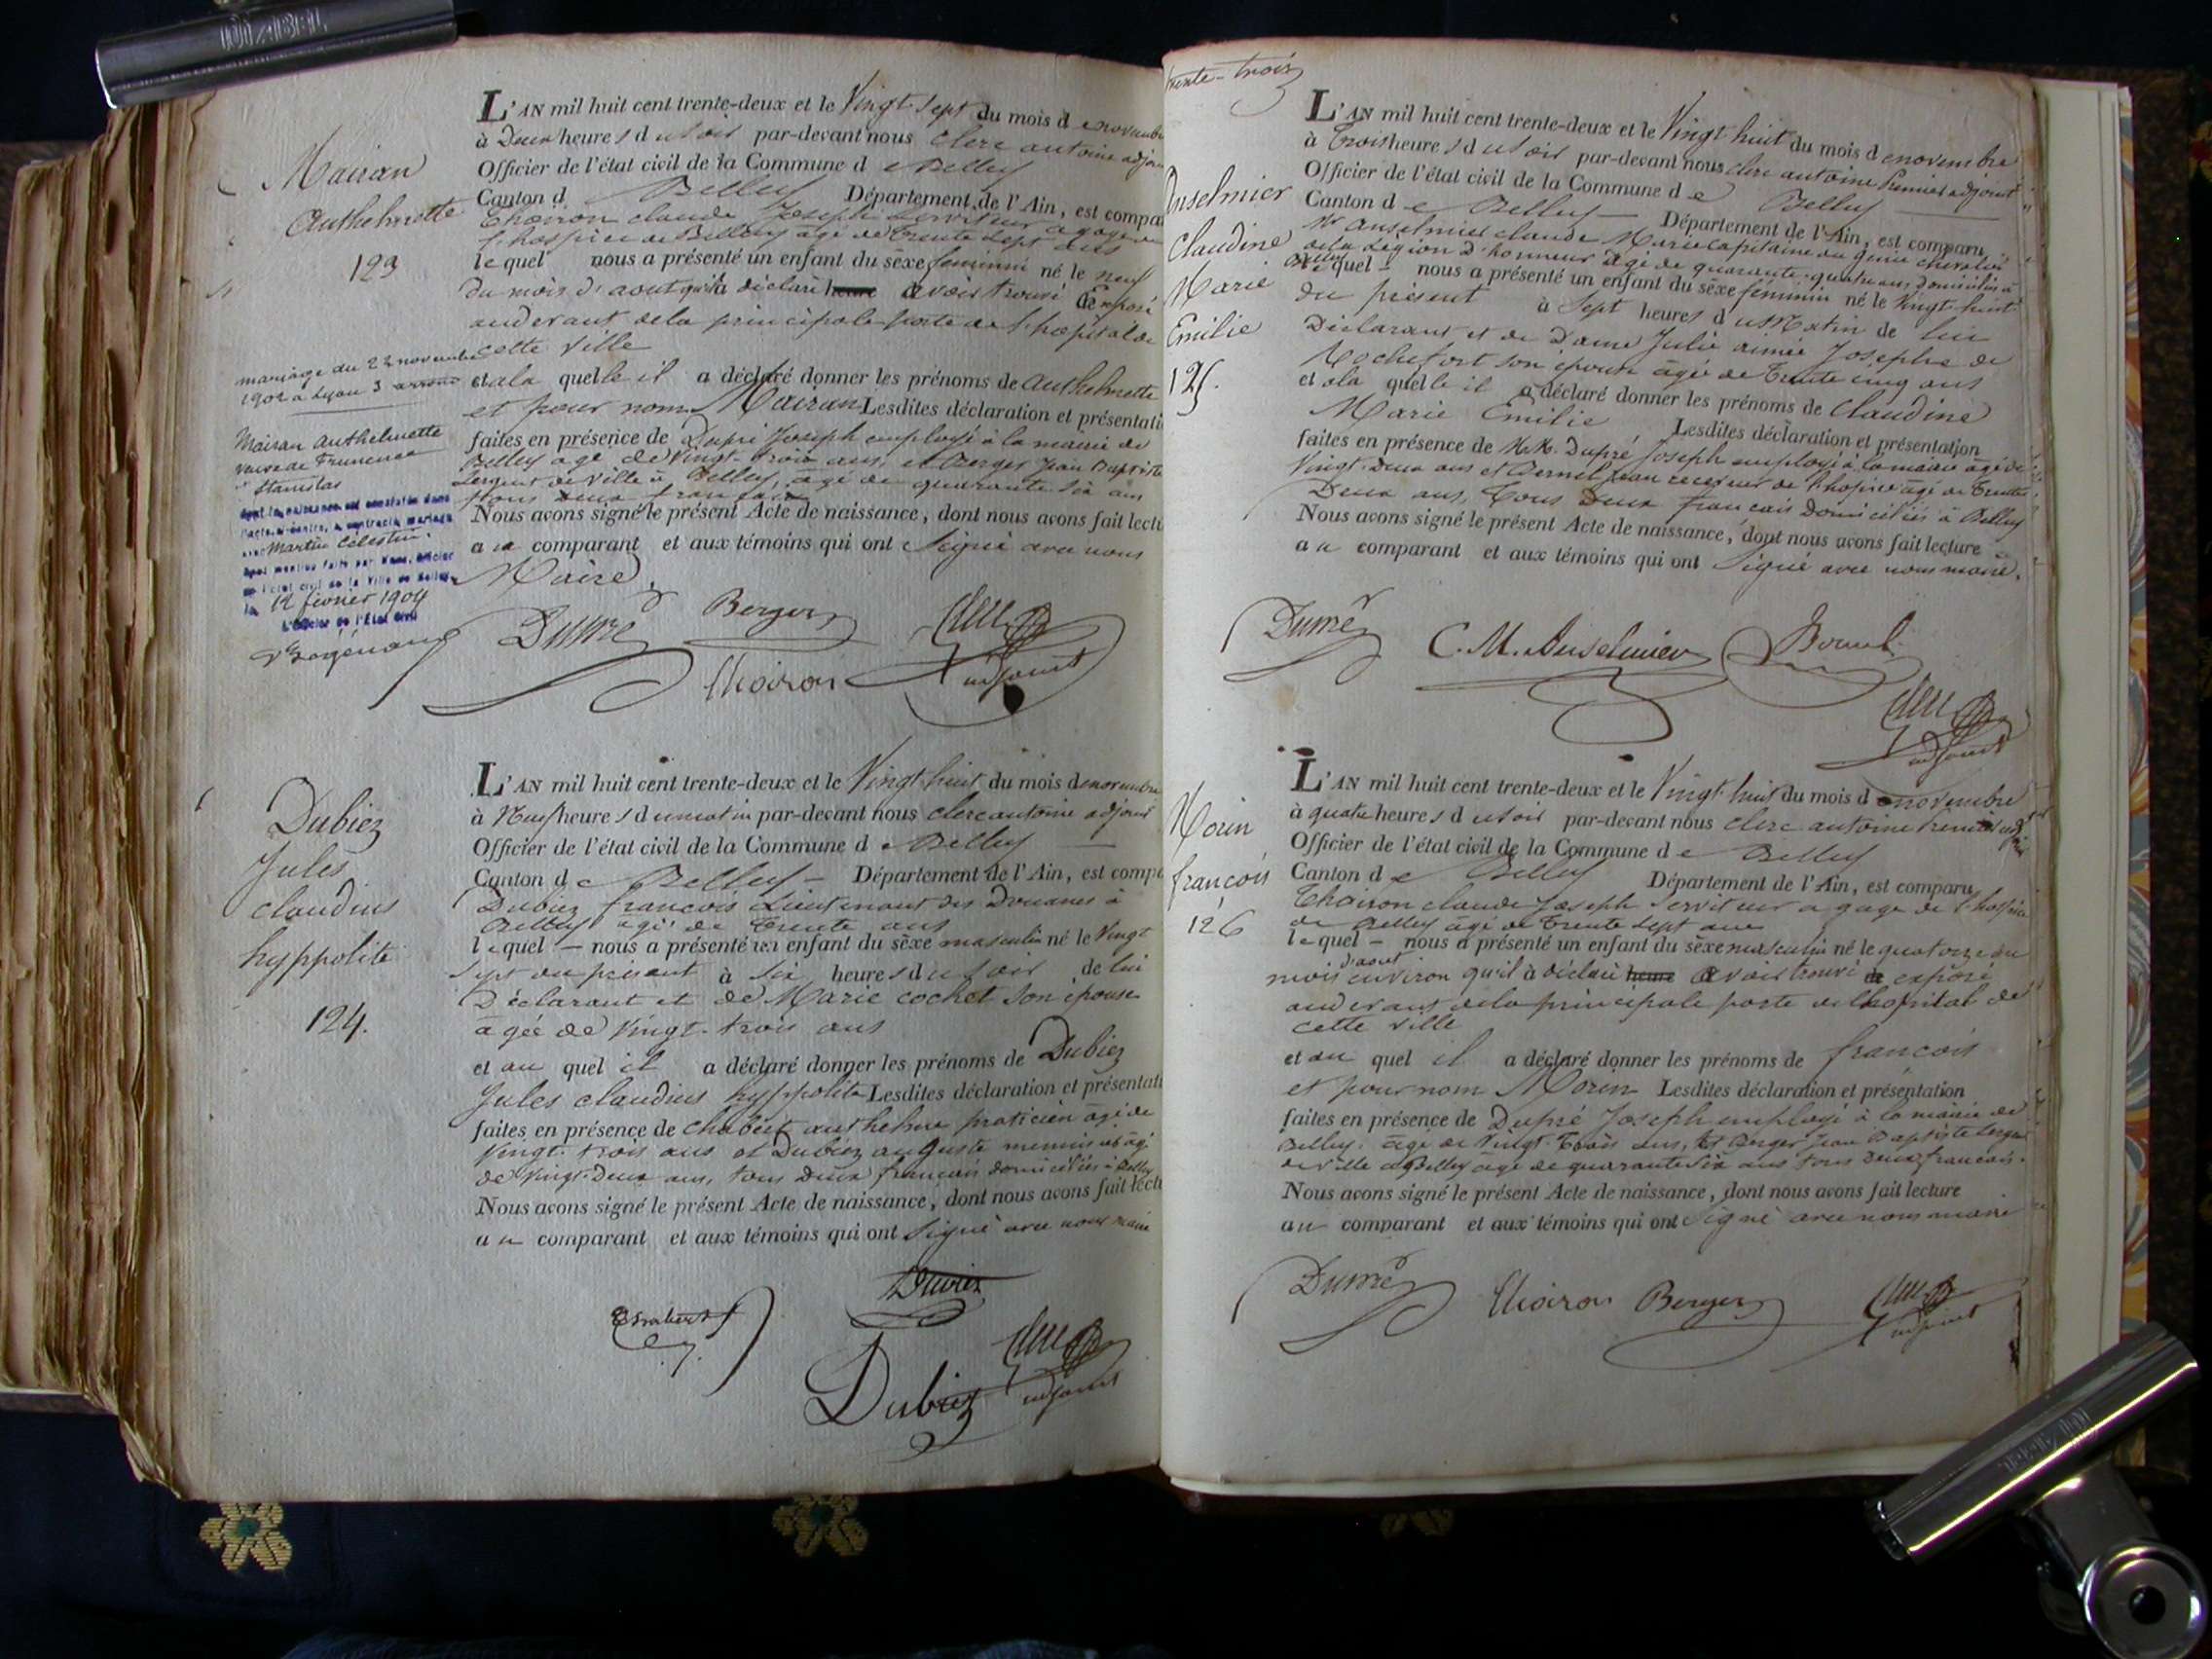 L'AN mil huit cent trente-deux et le Vingt Sept du mois d e novembre
à Deux heures d u soir par-devant nous clerc antoine adjoint
Officier de l'état civil de la Commune d e Belley
Canton d Belley Département de l'Ain, est compa
Thoiron claude Joseph serviteur a gage de
l'hospice de Belley âgé de trente sept ans
le quel nous a présenté un enfant du sèxe feminin né le neuf
du mois d'aout qu'il à déclaré avoir trouvé exposé
audevant de la principale porte de l'hopital de
cette ville
et a la quelle il a déclaré donner les prénoms de Anthelmette
et pour nom Mairan Lesdites déclaration et présentati
faites en présence de Dupré Joseph employé à la mairie de
Belley age de Vingt trois ans, et Berger Jean Baptiste
Sergent de ville à Belley, âgé de quarante six ans
tous deux francais
Nous avons signé le présent Acte de naissance, dont nous avons fait lectu
a u comparant et aux témoins qui ont Signé avec nous
Maire
Mairan
Anthelmette
123
mariage du 22 novembre
1902 à Lyon 3 arrond
Mairan Anthelmette
veuve de
Stanislas
dont la naissance est constatée dans
l'acte ci-contre, a contracté mariage
avec Martin Célestin.
12 février 1904
L'Officier de l'État Civil
Dupré Berger
Thoiron adjoint
L'AN mil huit cent trente-deux et le Vingt huit du mois d e novembre
à Neuf heures d u matin par-devant nous clerc antoine adjoint
Officier de l'état civil de la Commune d e Belley
Canton d e Belley Département de l'Ain, est compa
Dubiez francois Lieutenant des Douanes à
Belley âgé de Trente ans
le quel nous a présenté un enfant du sèxe masculin né le Vingt
sept du présent à six heures d u soir de lui
Déclarant et de Marie cochet son épouse
âgée de Vingt-trois ans
et au quel il a déclaré donner les prénoms de Dubiez
Jules claudius hyppolite Lesdites déclaration et présentati
faites en présence de chabert anthelme praticien âgé de
Vingt trois ans et Dubiez auguste âgé
de Vingt-Deux ans, tous deux francais domiciliés à Belley
Nous avons signé le présent Acte de naissance, dont nous avons fait lectu
a u comparant et aux témoins qui ont Signé avec nous maire
Dubiez
Jules
claudius
hyppolite
124.
Dubiez
Dubiez adjoint
trente-trois
L'AN mil huit cent trente-deux et le Vingt huit du mois d e novembre
à Trois heures d u soir par-devant nous clerc antoine Premier adjoint
Officier de l'état civil de la Commune d e Belley
Canton d e Belley Département de l'Ain, est comparu
Mr Anselmier claude Marie capitaine du génie chevalier
de la Légion d'honneur âgé de quarante-quatre ans, domicilié à
Belley le quel nous a présenté un enfant du sèxe féminin né le Vingt huit
du présent à Sept heures d u Matin de lui
Déclarant et de Dame Julie aimée Josephe de
Rochefort son épouse âgée de trente cinq ans
et a la quelle il a déclaré donner les prénoms de Claudine
Marie Emilie Lesdites déclaration et présentation
faites en présence de M.M. Dupré Joseph employé à la mairie âgé de
Vingt-deux ans et Bernel Jean receveur de l'hospice âgé de Trente
Deux ans, Tous Deux francais Domiciliés à Belley
Nous avons signé le présent Acte de naissance, dont nous avons fait lecture
a u comparant et aux témoins qui ont Signé avec nous maire.
Anselmier
Claudine
Marie
Emilie
125.
Dupré C. M. Anselmier
adjoint
L'AN mil huit cent trente-deux et le Vingt huit du mois d e novembre
à quatre heures d u soir par-devant nous clerc antoine Premier adjoint
Officier de l'état civil de la Commune d e Belley
Canton d e Belley Département de l'Ain, est comparu
Thoiron claude Joseph Serviteur a gage de l'hospice
de Belley âgé de trente sept ans
le quel nous a présenté un enfant du sèxe masculin né le quatorze du
mois d'aout environ qu'il à déclaré avoir trouvé exposé
audevant de la principale porte de l'hopital de
cette ville
et au quel il a déclaré donner les prénoms de francois
et pour nom Morin Lesdites déclaration et présentation
faites en présence de Dupré Joseph employé à la mairie de
Belley, âgé de Vingt Trois ans, et Berger Jean Baptiste Sergent
de ville à Belley âgé de quarante six ans tous deux francais.
Nous avons signé le présent Acte de naissance, dont nous avons fait lecture
a u comparant et aux témoins qui ont Signé avec nous maire
Morin
francois
126
Dupré Thoiron Berger adjoint